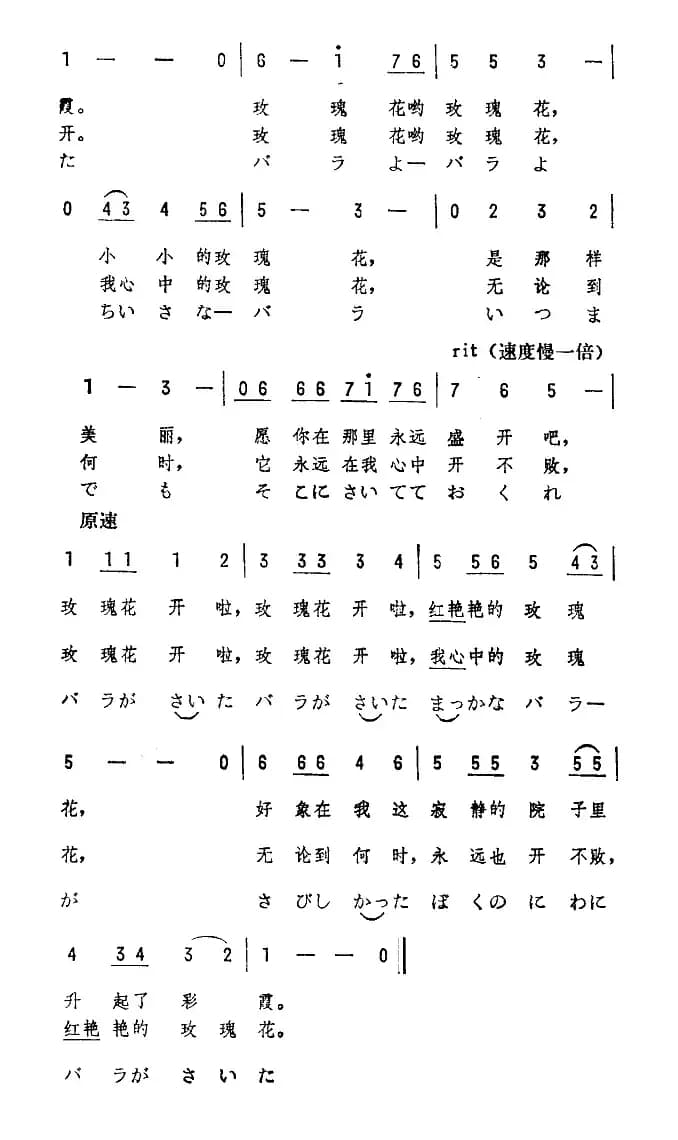 1 — — 0 | 6 — i 76 | 5 5 3 — |
霞。 玫 瑰 花哟 玫 瑰 花，
开。 玫 瑰 花哟 玫 瑰 花，
た バ ラ よー バ ラ よ
0 43 4 56 | 5 — 3 — | 0 2 3 2 |
小 小 的玫 瑰 花， 是 那 样
我心 中 的玫 瑰 花， 无 论 到
ちい さ なー バ ラ い つ ま
rit（速度慢一倍）
1 — 3 — | 06 66 7i 76 | 7 6 5 — |
美 丽， 愿 你在 那里 永远 盛 开 吧，
何 时， 它 永远 在我 心中 开 不 败，
で も そ こに さい てて お く れ
原速
1 11 1 2 | 3 33 3 4 | 5 56 5 43 |
玫 瑰花 开 啦，玫 瑰花 开 啦，红艳 艳的 玫 瑰
玫 瑰花 开 啦，玫 瑰花 开 啦，我心 中的 玫 瑰
バ ラが さい た バ ラが さい た まっ かな バ ラー
5 — — 0 | 6 66 4 6 | 5 55 3 55 |
花， 好 象在 我 这 寂 静的 院 子里
花， 无 论到 何 时，永 远也 开 不败，
が さ びし かっ た ぼ くの に わに
4 34 3 2 | 1 — — 0 ‖
升 起了 彩 霞。
红艳 艳的 玫 瑰 花。
バ ラが さ い た